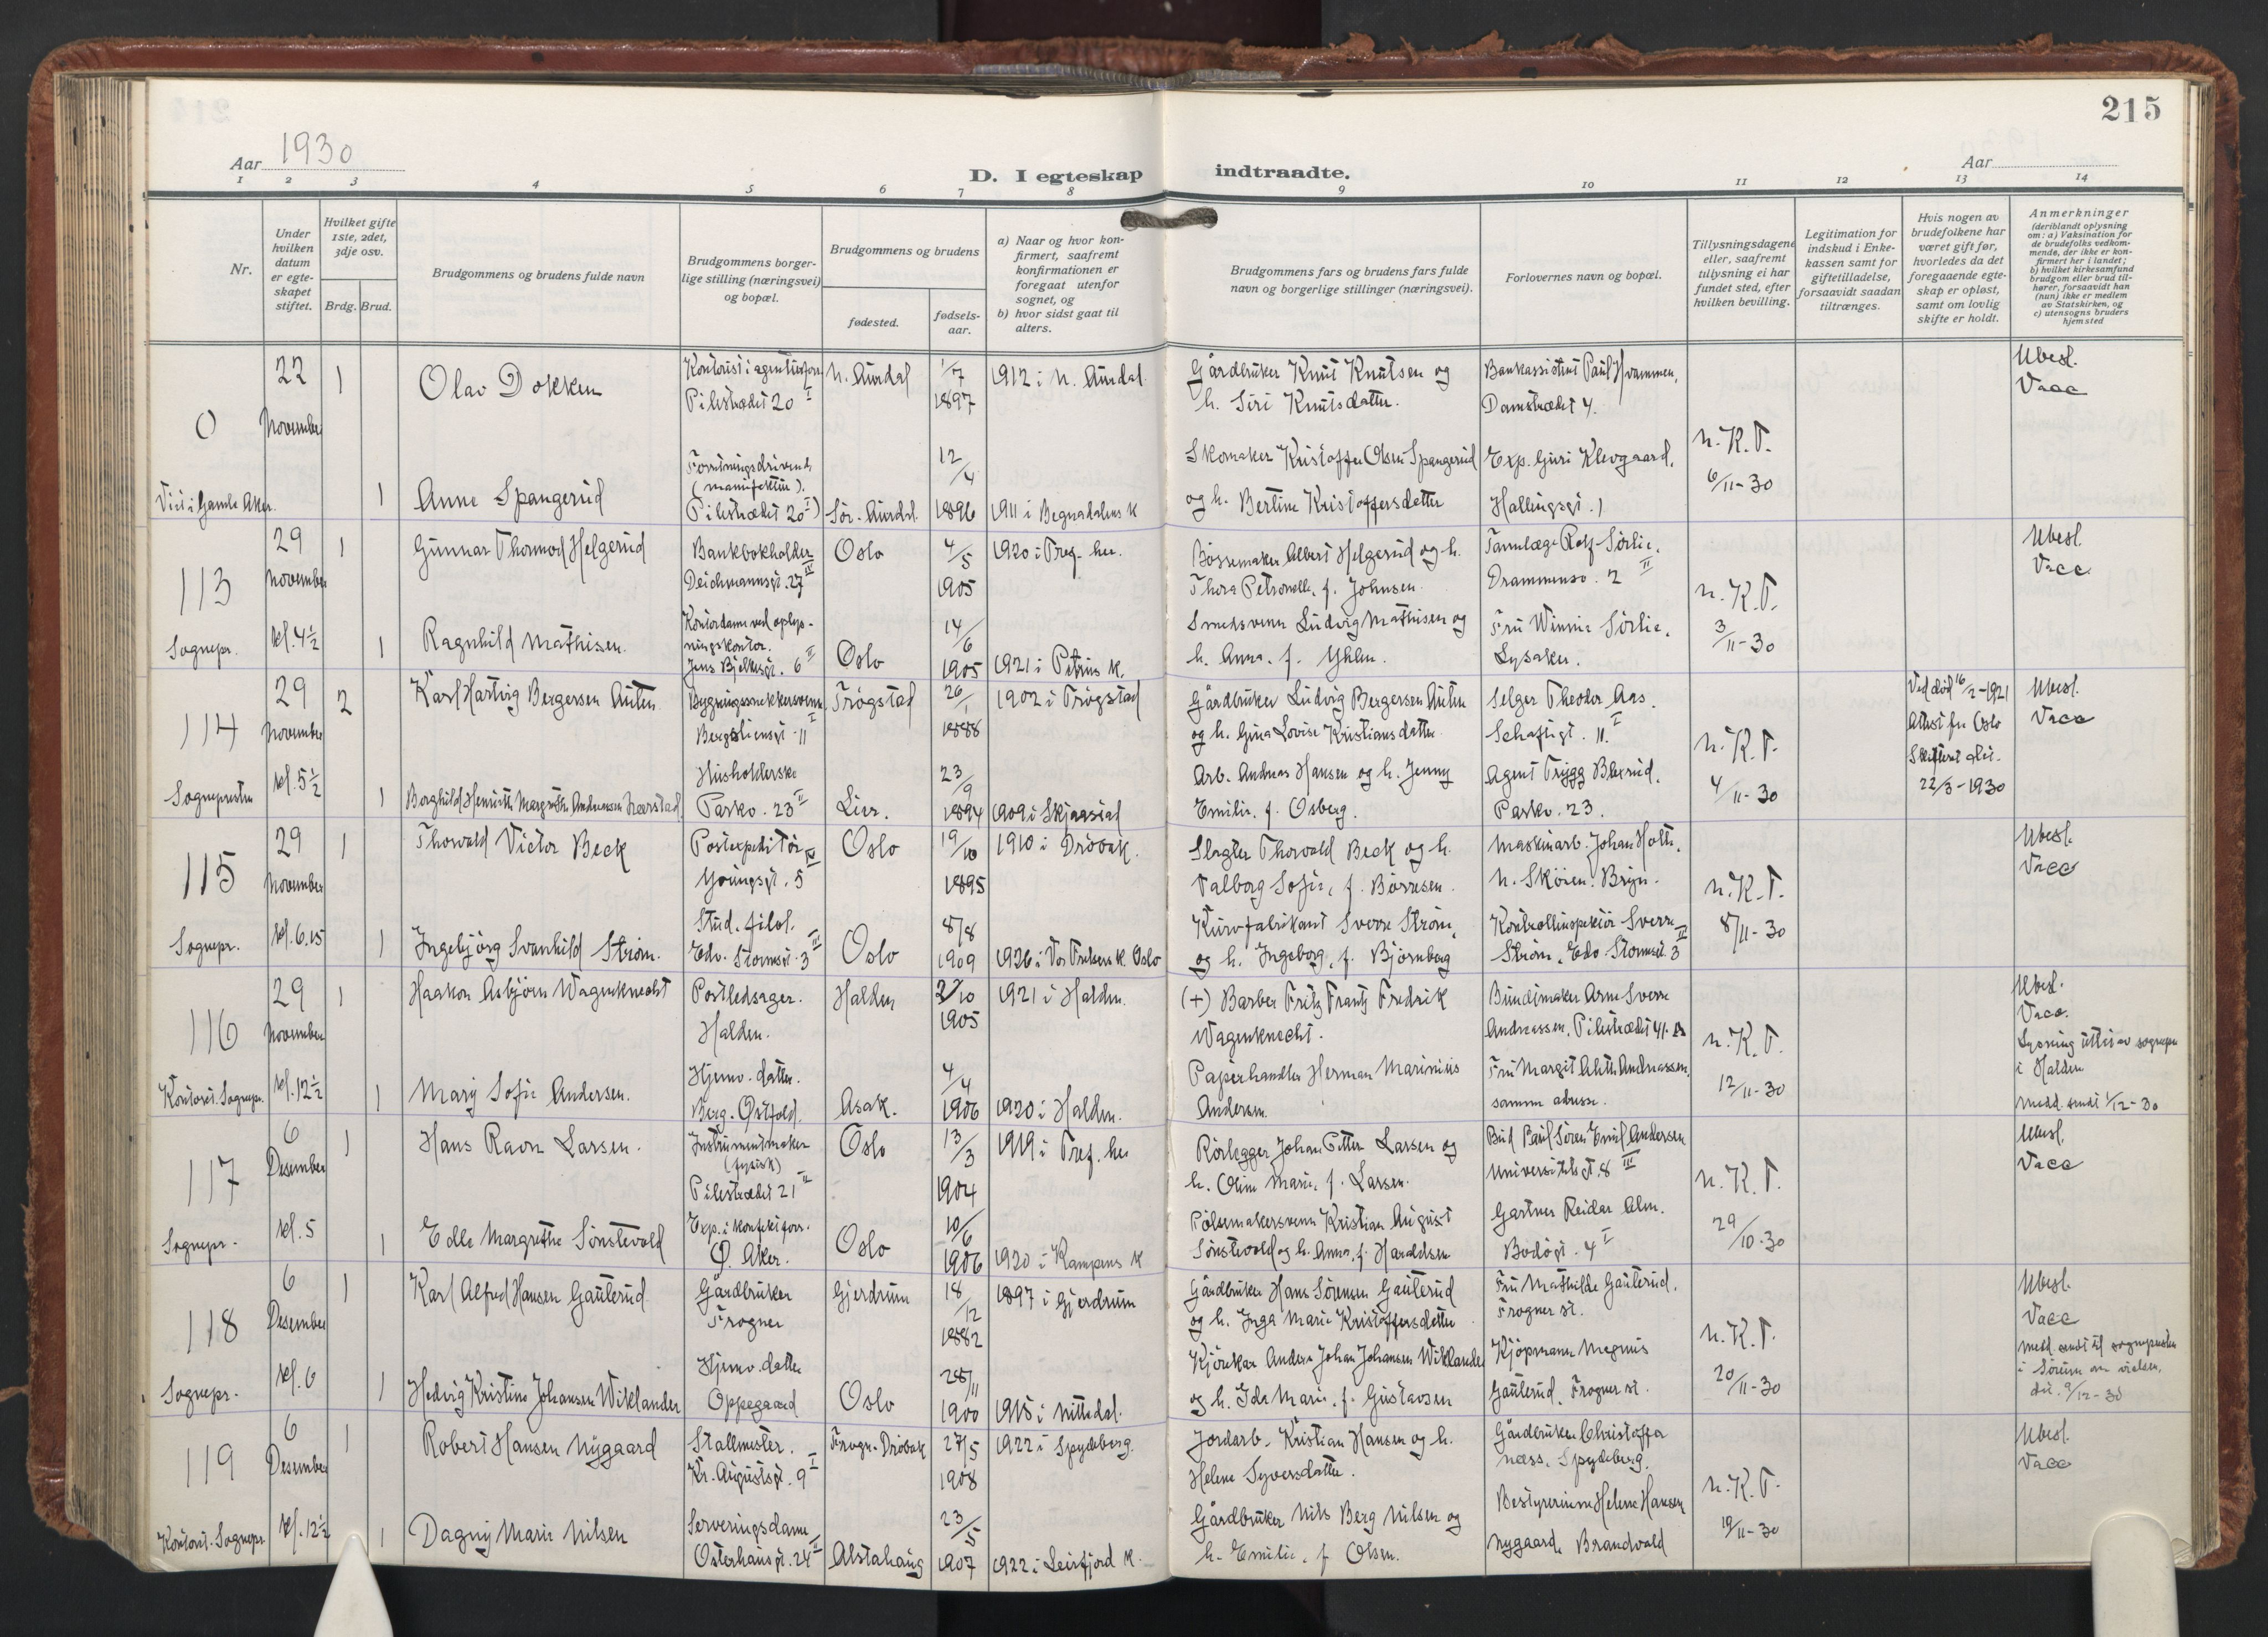 215
Aar 1930
D. I egteskap indtraadte.
Aar
1 2 3 4 5 6 7 8 9 10 11 12 13 14
Nr.
Under hvilken datum er egteskapet stiftet.
Hvilket gifte 1ste, 2det, 3dje osv.
Brdg. Brud.
Brudgommens og brudens fulde navn
Brudgommens borgerlige stilling (næringsvei) og bopæl.
Brudgommens og brudens
fødested.
fødselsaar.
a) Naar og hvor konfirmert, saafremt konfirmationen er foregaat utenfor sognet, og
b) hvor sidst gaat til alters.
Brudgommens fars og brudens fars fulde navn og borgerlige stillinger (næringsvei).
Forlovernes navn og bopæl.
Tillysningsdagene eller, saafremt tillysning ei har fundet sted, efter hvilken bevilling.
Legitimation for indskud i Enkekassen samt for giftetilladelse, forsaavidt saadan tiltrænges.
Hvis nogen av brudefolkene har været gift før, hvorledes da det foregaaende egteskap er opløst, samt om lovlig skifte er holdt.
Anmerkninger (deriblandt oplysning om: a) Vaksination for de brudefolks vedkommende, der ikke er konfirmert her i landet; b) hvilket kirkesamfund brudgom eller brud tilhører, forsaavidt han (hun) ikke er medlem av Statskirken, og c) utensogns bruders hjemsted
0
Viet i Gamle Aker.
22 November
1 Olav Dokken
Kontorist i agenturforr.
Pilestrædet 20 I
N. Aurdal
1/7 1897
1912 i N. Aurdal
Gårdbruker Knut Knutsen og
h. Siri Knutsdatter.
Bankassistent Paul Hvammen,
Damstrædet 4.
1 Anne Spangerud
Forretningsdrivende
(manufaktur).
Pilestrædet 20 I)
Sør-Aurdal
12/4 1896
1911 i Begnadalens k
Skomaker Kristoffer Olsen Spangerud
og h. Bertine Kristoffersdatter
Exp. Guri Klevgaard,
Hallingsgt. 1
n. K. T.
6/11-30
Ubesl.
Vacc
113
Sognepr.
29 November kl. 4½
1 Gunnar Thormod Helgerud
Bankbokholder
Deichmannsgt. 27 IV
Oslo
4/5 1905
1920 i Tref. her.
Bøssemaker Albert Helgerud og h.
Thora Petronelle, f. Johnsen.
Tannlæge Rolf Sørlie,
Drammensv. 2 II
1 Ragnhild Mathisen.
Kontordame ved oplysningskontor.
Jens Bjelkesgt. 6 II
Oslo
14/6 1905
1921 i Petrus k.
Smedsvenn Ludvig Mathisen og
h. Anna, f. Yhlen.
Fru Winnie Sørlie,
Lysaker.
n. K. T.
3/11-30
Ubesl.
Vacc
114
Sognepresten
29 November kl. 5½
2 Karl Hartvig Bergersen Auten
Bygningssnekkersvenn
Bergsliensgt. 11 I
Trøgstad
26/1 1888
1902 i Trøgstad
Gårdbruker Ludvig Bergersen Auten
og h. Gina Lovise Kristiansdatter.
Selger Theodor Aas.
Schaftsgt. 11. I
1 Borghild Henriette Margrethe Andreassen Haarstad
Husholderske
Parkv. 23 II
Lier.
23/9 1894
1909 i Skjaastad
Arb. Andreas Hansen og h. Jenny
Emilie, f. Osberg.
Agent Trygg Blexrud.
Parkv. 23.
n. K. T.
4/11-30
Ved død 16/2-1921
Attest fra Oslo
Skifterett dat.
22/3-1930
Ubesl.
Vacc
115
Sognepr.
29 November kl. 6.15
1 Thorvald Victor Beck
Postexpeditør
Youngsgt. 5 IV
Oslo
19/10 1895
1910 i Drøbak.
Slagter Thorvald Beck og h.
Valborg Sofie, f. Børresen.
Maskinarb. Johan Holth,
N. Skøien. Bryn.
1 Ingebjørg Svanhild Strøm.
Stud. filol.
Edv. Stormsgt. 3 III
Oslo
8/8 1909
1926 i Vor Frelsers k. Oslo
Kurvfabrikant Sverre Strøm,
og h. Ingeborg, f. Bjørnberg
Kontrollinspektør Sverre
Strøm, Edv. Stormsgt. 3 II
n. K. T.
8/11-30
Ubesl.
Vacc
116
Kontoret. Sognepr.
29 November kl. 12½
1 Haakon Asbjørn Wagenknecht
Postledsager.
Halden.
Halden
2/10 1905
1921 i Halden.
(+) Barber Fritz Frantz Fredrik
Wagenknecht.
Buntmaker Arne Sverre
Andreassen, Pilestrædet 41.
1 Mary Sofie Andersen.
Hjemv. datter.
Berg. Østfold.
Asak.
4/4 1906
1920 i Halden.
Papirhandler Herman Marinius
Andersen
Fru Margit Aleth Andreassen,
samme adresse.
n. K. T.
12/11-30
Ubesl.
Vacc.
Lysning utlis av sognepr
i Halden
Medd. sendt 1/12-30
117
Sognepr.
6 Desember kl. 5
1 Hans Ravn Larsen.
Instrumentmaker
(fysisk)
Pilestrædet 21 II
Oslo
13/3 1904
1919 i Tref. her
Rørlegger Johan Petter Larsen og
h. Oline Marie, f. Larsen.
Bud Paul Søren Emil Andersen
Universitetsgt. 8 III
1 Edle Margrethe Sønstevold
Exp. i konfektforr.
Ø. Aker.
Oslo
10/6 1906
1920 i Kampens k
Pølsemakersvenn Kristian August
Sønstevold og h. Anna, f. Haraldsen
Gartner Reidar Alm.
Bodøgt. 4 I
n. K. T.
29/10-30
Ubesl.
Vacc
118
Sognepr.
6 Desember kl. 6
1 Karl Alfred Hansen Gauterud
Gårdbruker
Frogner
Gjerdrum
18/12 1882
1897 i Gjerdrum
Gårdbruker Hans Sørensen Gauterud
og h. Inga Marie Kristoffersdatter
Fru Mathilde Gauterud.
Frogner st.
1 Hedvig Kristine Johansen Wiklander
Hjemv. datter
Oppegaard
Oslo
25/11 1900
1915 i Nittedal.
Kjørekar Anders Johan Johansen Wiklander
og h. Ida Marie, f. Gustavsen
Kjøpmann Magnus
Gauterud, Frogner st.
n. K. T.
20/11-30
Ubesl.
Vacc
Medd. sendt til sognepresten
i Sørum om vielsen,
dat. 9/12-30
119
Kontoret. Sognepr.
6 Desember kl. 12½
1 Robert Hansen Nygaard
Stallmester.
Kr. Augustsgt. 9 I
Frogn. Drøbak
27/5 1908
1922 i Spydeberg.
Jordarb. Kristian Hansen og h.
Helene Syversdatter.
Gårdbruker Christoffer
Næss, Spydeberg.
1 Dagny Marie Nilsen
Serveringsdame
Osterhausgt. 24 II
Alstahaug
23/5 1907
1922 i Leirfjord k.
Gårdbruker Nils Berg Nilsen og
h. Emilie, f. Olsen.
Bestyrerinne Helene Hansen
Nygaard, Brandvold
n. K. T.
19/11-30
Ubesl.
Vacc